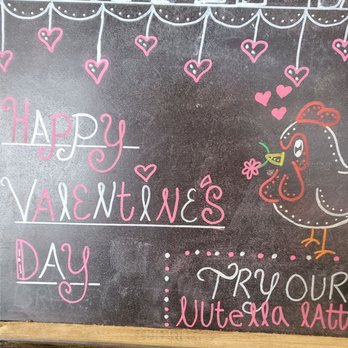 Happy
VALENTINE'S
DAY
TRY OUR
NUtella lAtt